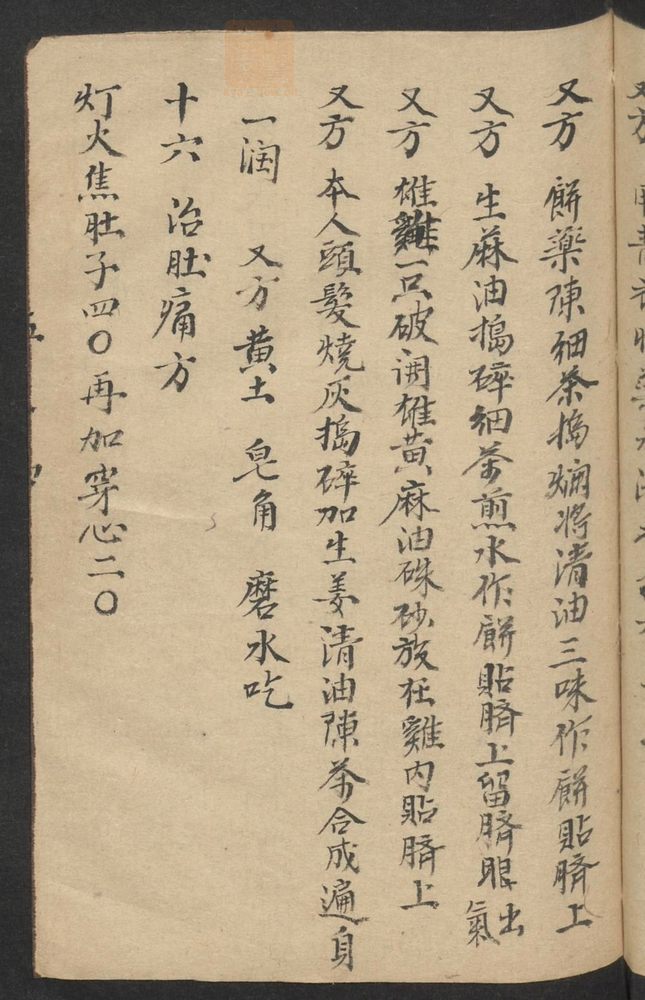 又方 餅藥陳細茶搗爛將清油三味作餅貼臍上
又方 生麻油搗碎細茶煎水作餅貼臍上留臍眼出氣
又方 雄雞一只破開雄黃麻油硃砂放在雞內貼臍上
又方 本人頭髮燒灰搗碎加生姜清油陳茶合成遍身
一潤 又方黃土 皂角 磨水吃
十六 治肚痛方
灯火焦肚子四〇再加穿心二〇